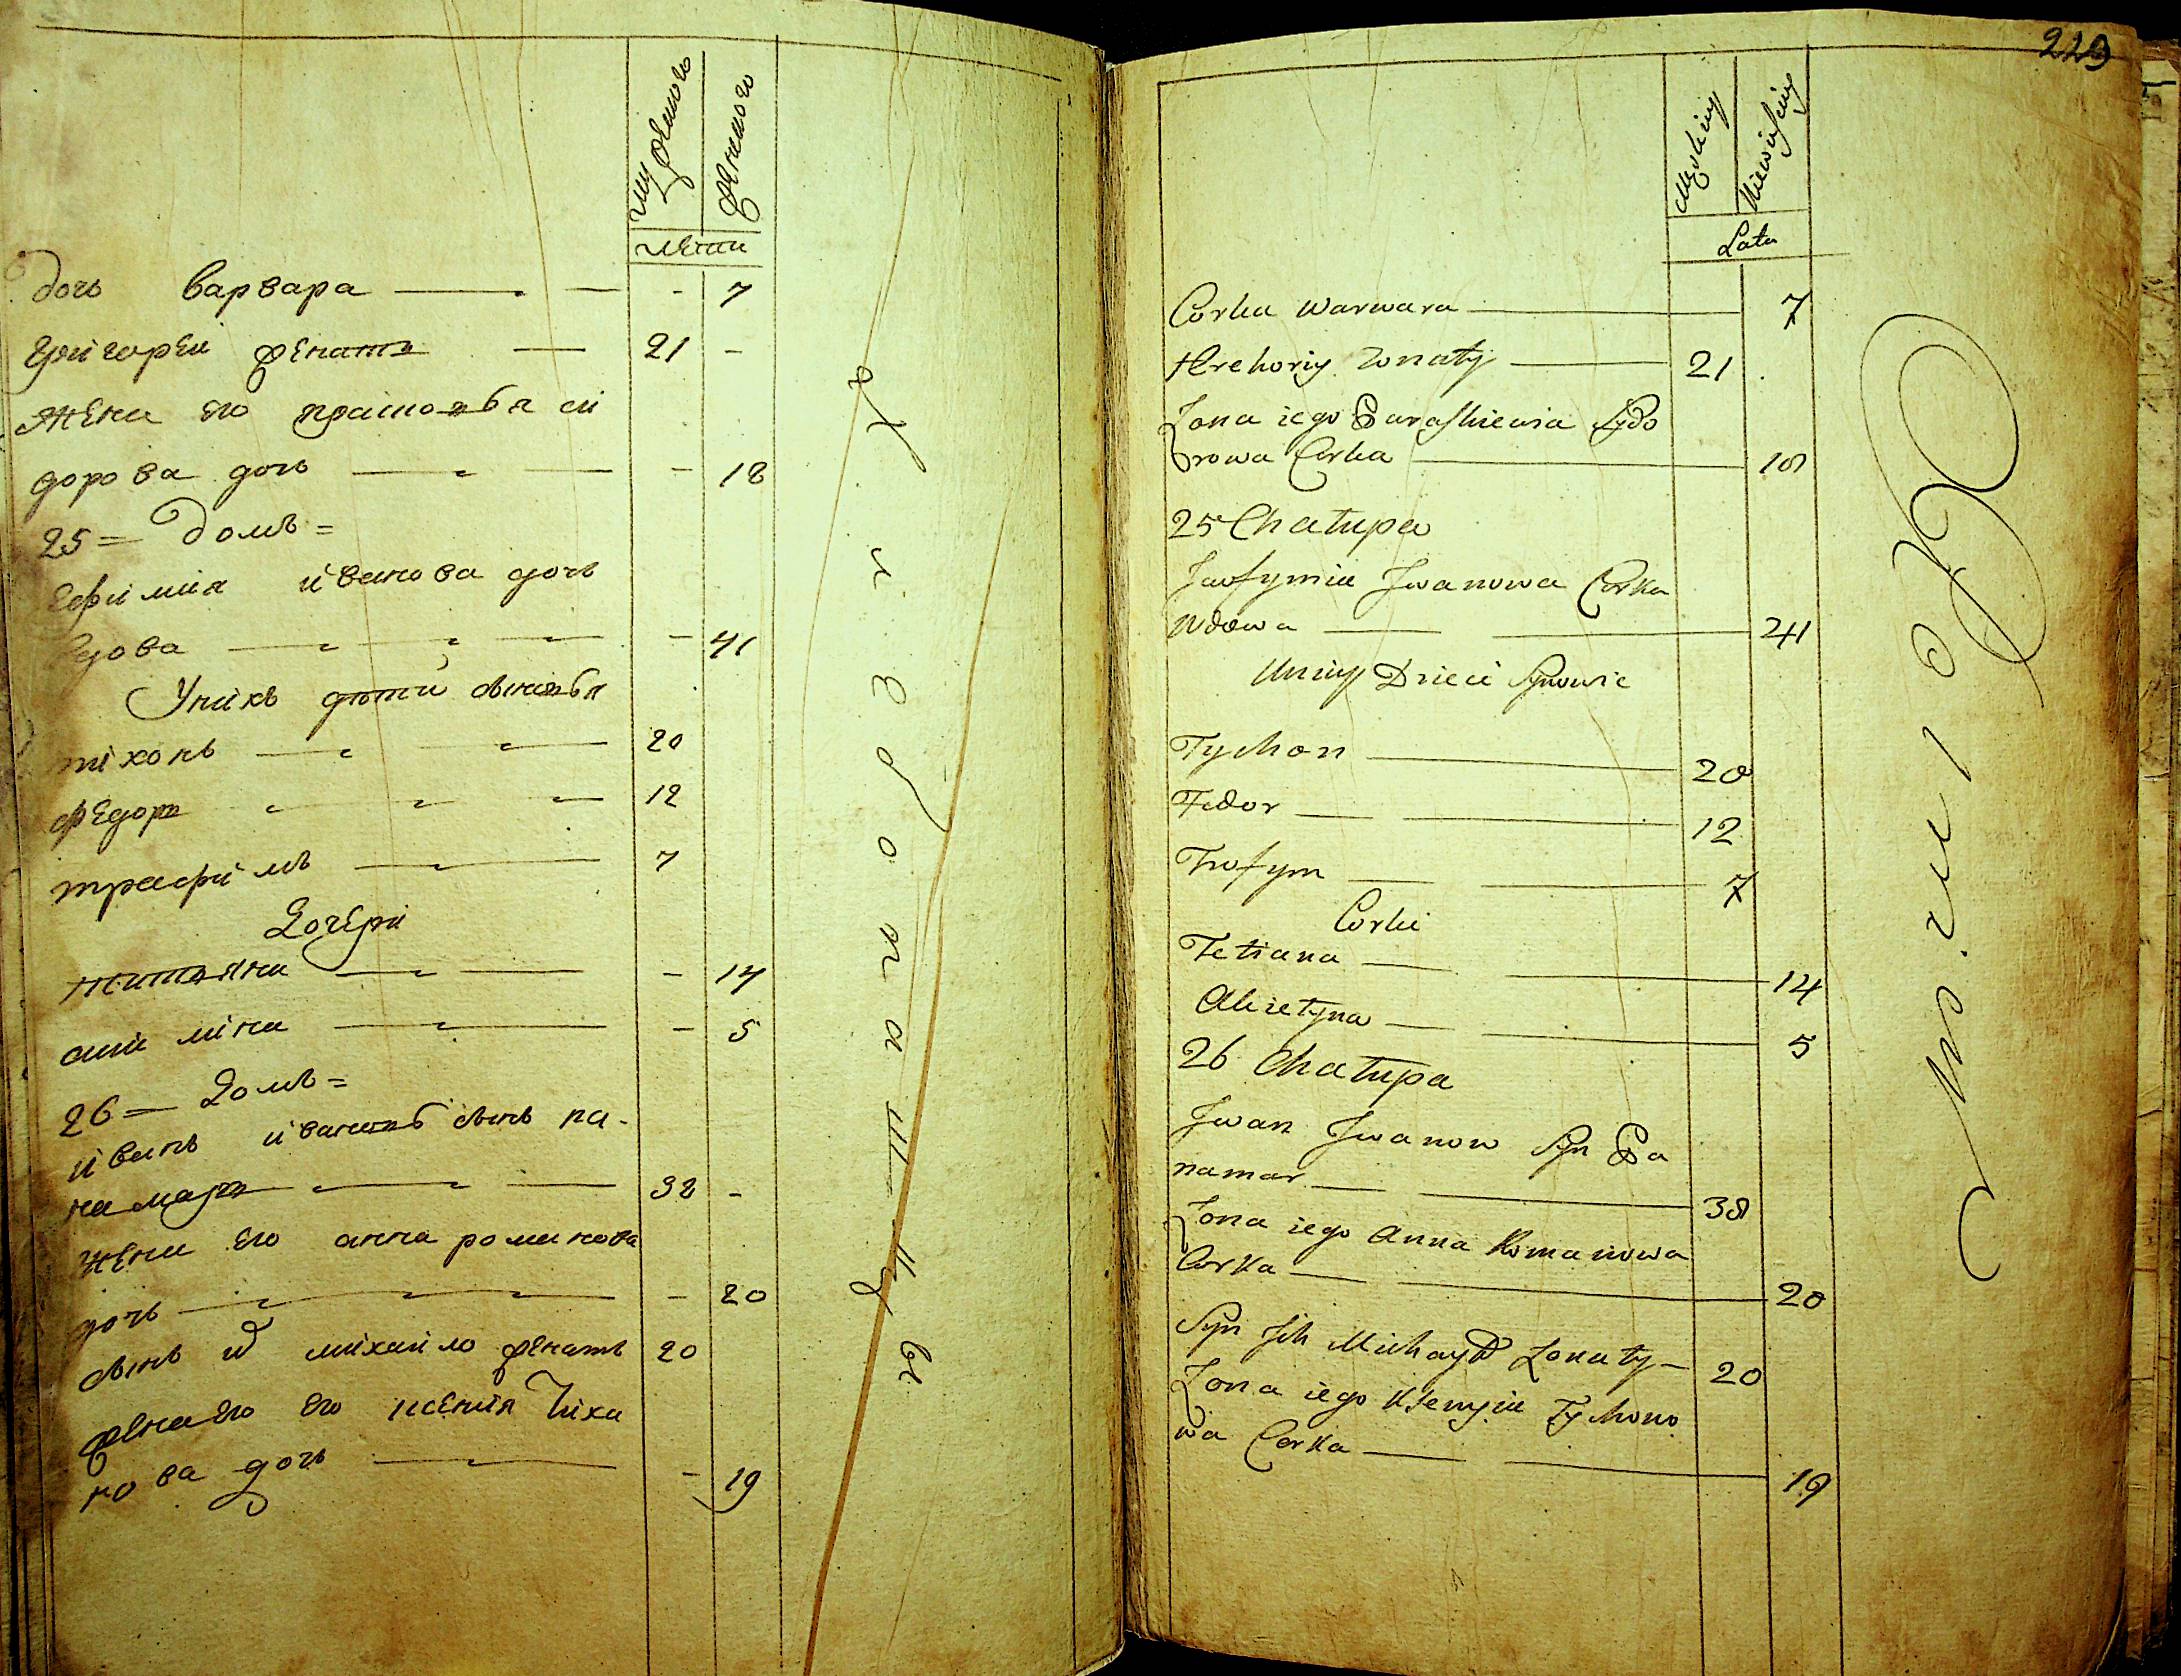 мужескаго
женскаго
лѣты
дочь варвара — - 7
григорей женатъ — 21 -
жена его прасковья си
дорова дочь — - 18
25 = домъ =
Ефимия иванова дочь
вдова — - 41
У нихъ дѣтй сыновья
тихонъ — 20
федоръ — 12
трафимъ — 7
Дочери
татьяна — - 14
акилина — - 5
26 = Домъ =
иванъ ивановъ сынъ па-
намаръ — 38 -
жена его анна романова
дочь — - 20
сынъ их михайло женатъ 20
жена его ксения тихо
нова дочь — - 19
229
Męskiey
Niewiesciey
Lata
Corka Warwara — 7
Hrehoriy Zonaty — 21
Zona iego Paraskiewia Sydo
rowa Corka — 18
25 Chałupa
Jawfymia Jwanowa Corka
Wdowa — 41
U niey Dzieci Synowie
Tychon — 20
Fedor — 12
Trofym — 7
Corki
Tetiana — 14
Akiełyna — 5
26 Chałupa
Jwan Jwanow Syn Pa
namar — 38
Zona iego Anna Romanowa
Corka — 20
Syn Jch Michayło Zonaty — 20
Zona iego Ksenyia Tychono
wa Corka — 19